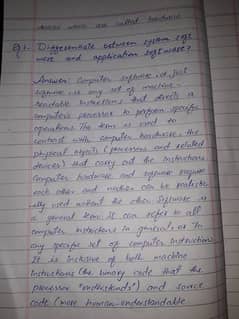 which are called hardware
Q1- Differentiate between system soft
ware and application software?
Answer: Computer software or just
software is any set of machine-
readable instructions that directs a
computer's processor to perform specific
operations. The term is used to
contrast with computer hardware, the
physical objects (processors and related
devices) that carry out the instructions
Computer hardware and software require
each other and neither can be realistic
ally used without the other. Software is
a general term. It can refer to all
computer instructions in general or
any specific set of computer instructions
It is inclusive of both machine
instructions (the binary code that the
processor "understands") and source
code (more human-understandable